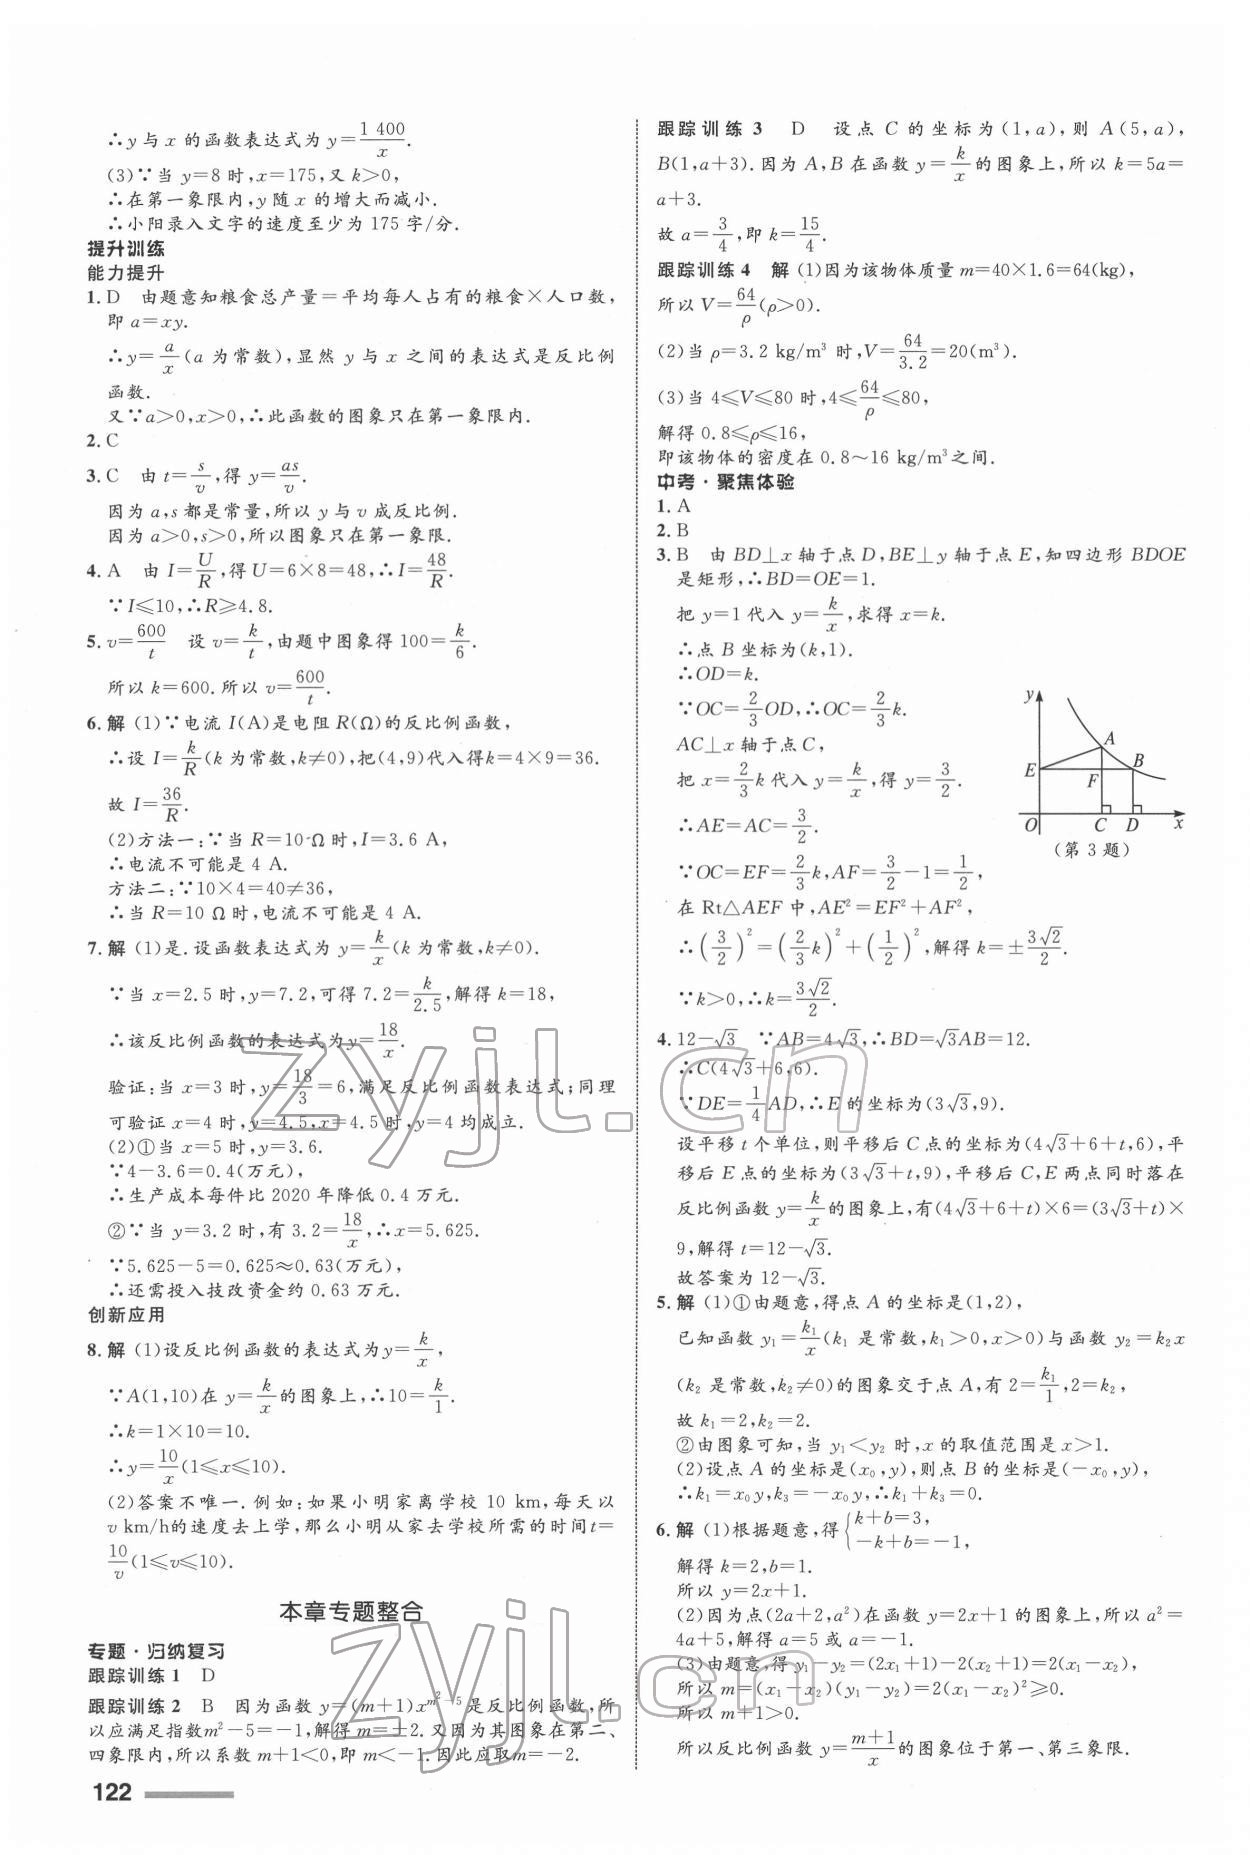 ∴y与x的函数表达式为y=1 400/x.
(3)∵当y=8时,x=175,又k>0,
∴在第一象限内,y随x的增大而减小.
∴小阳录入文字的速度至少为175字/分.
提升训练
能力提升
1. D 由题意知粮食总产量=平均每人占有的粮食×人口数,
即a=xy.
∴y=a/x(a为常数),显然y与x之间的表达式是反比例
函数.
又∵a>0,x>0,∴此函数的图象只在第一象限内.
2. C
3. C 由t=s/v,得y=as/v.
因为a,s都是常量,所以y与v成反比例.
因为a>0,s>0,所以图象只在第一象限.
4. A 由I=U/R,得U=6×8=48,∴I=48/R.
∵I≤10,∴R≥4.8.
5. v=600/t 设v=k/t,由题中图象得100=k/6.
所以k=600.所以v=600/t.
6. 解 (1)∵电流I(A)是电阻R(Ω)的反比例函数,
∴设I=k/R(k为常数,k≠0),把(4,9)代入得k=4×9=36.
故I=36/R.
(2)方法一:∵当R=10 Ω时,I=3.6 A,
∴电流不可能是4 A.
方法二:∵10×4=40≠36,
∴当R=10 Ω时,电流不可能是4 A.
7. 解 (1)是.设函数表达式为y=k/x(k为常数,k≠0).
∵当x=2.5时,y=7.2,可得7.2=k/2.5,解得k=18,
∴该反比例函数的表达式为y=18/x.
验证:当x=3时,y=18/3=6,满足反比例函数表达式;同理
可验证x=4时,y=4.5,x=4.5时,y=4均成立.
(2)①当x=5时,y=3.6.
∵4-3.6=0.4(万元),
∴生产成本每件比2020年降低0.4万元.
②∵当y=3.2时,有3.2=18/x,∴x=5.625.
∵5.625-5=0.625≈0.63(万元),
∴还需投入技改资金约0.63万元.
创新应用
8. 解 (1)设反比例函数的表达式为y=k/x,
∵A(1,10)在y=k/x的图象上,∴10=k/1.
∴k=1×10=10.
∴y=10/x(1≤x≤10).
(2)答案不唯一.例如:如果小明家离学校10 km,每天以
v km/h的速度去上学,那么小明从家去学校所需的时间t=
10/v(1≤v≤10).
本章专题整合
专题·归纳复习
跟踪训练1 D
跟踪训练2 B 因为函数y=(m+1)x^(m²-5)是反比例函数,所
以应满足指数m²-5=-1,解得m=±2.又因为其图象在第二、
四象限内,所以系数m+1<0,即m<-1.因此应取m=-2.
122
跟踪训练3 D 设点C的坐标为(1,a),则A(5,a),
B(1,a+3).因为A,B在函数y=k/x的图象上,所以k=5a=
a+3.
故a=3/4,即k=15/4.
跟踪训练4 解 (1)因为该物体质量m=40×1.6=64(kg),
所以V=64/ρ(ρ>0).
(2)当ρ=3.2 kg/m³时,V=64/3.2=20(m³).
(3)当4≤V≤80时,4≤64/ρ≤80,
解得0.8≤ρ≤16,
即该物体的密度在0.8~16 kg/m³之间.
中考·聚焦体验
1. A
2. B
3. B 由BD⊥x轴于点D,BE⊥y轴于点E,知四边形BDOE
是矩形,∴BD=OE=1.
把y=1代入y=k/x,求得x=k.
∴点B坐标为(k,1).
∴OD=k.
∵OC=2/3OD,∴OC=2/3k.
AC⊥x轴于点C,
把x=2/3k代入y=k/x,得y=3/2.
∴AE=AC=3/2.
∵OC=EF=2/3k,AF=3/2-1=1/2,
在Rt△AEF中,AE²=EF²+AF²,
∴(3/2)²=(2/3k)²+(1/2)²,解得k=±3√2/2.
∵k>0,∴k=3√2/2.
y
A
E
B
F
O
C
D
x
(第3题)
4. 12-√3 ∵AB=4√3,∴BD=√3AB=12.
∴C(4√3+6,6).
∵DE=1/4AD,∴E的坐标为(3√3,9).
设平移t个单位,则平移后C点的坐标为(4√3+6+t,6),平
移后E点的坐标为(3√3+t,9),平移后C,E两点同时落在
反比例函数y=k/x的图象上,有(4√3+6+t)×6=(3√3+t)×
9,解得t=12-√3.
故答案为12-√3.
5. 解 (1)①由题意,得点A的坐标是(1,2),
已知函数y₁=k₁/x(k₁是常数,k₁>0,x>0)与函数y₂=k₂x
(k₂是常数,k₂≠0)的图象交于点A,有2=k₁/1,2=k₂,
故k₁=2,k₂=2.
②由图象可知,当y₁<y₂时,x的取值范围是x>1.
(2)设点A的坐标是(x₀,y),则点B的坐标是(-x₀,y),
∴k₁=x₀y,k₃=-x₀y,∴k₁+k₃=0.
6. 解 (1)根据题意,得{k+b=3,
-k+b=-1,
解得k=2,b=1.
所以y=2x+1.
(2)因为点(2a+2,a²)在函数y=2x+1的图象上,所以a²=
4a+5,解得a=5或a=-1.
(3)由题意,得y₁-y₂=(2x₁+1)-2(x₂+1)=2(x₁-x₂),
所以m=(x₁-x₂)(y₁-y₂)=2(x₁-x₂)²≥0.
所以m+1>0.
所以反比例函数y=m+1/x的图象位于第一、第三象限.
zyjl.cn
zyjl.cn